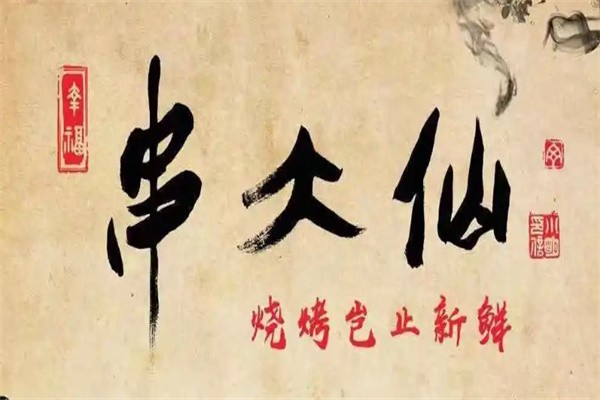 幸福
串大仙
烧烤岂止新鲜